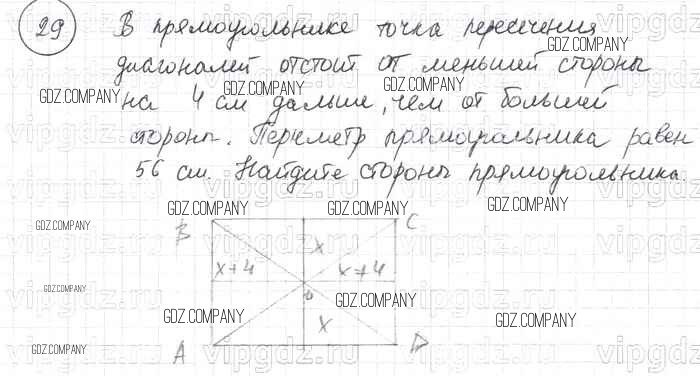 29 В прямоугольнике точка пересечения
GDZ.COMPANY
диагоналей отстоит от меньшей стороны
GDZ.COMPANY GDZ.COMPANY GDZ.COMPANY
на 4 см дальше, чем от большей
стороны. Периметр прямоугольника равен
56 см. Найдите стороны прямоугольника.
GDZ.COMPANY GDZ.COMPANY GDZ.COMPANY
GDZ.COMPANY
B C
x
x+4 x+4
GDZ.COMPANY
O GDZ.COMPANY
GDZ.COMPANY x GDZ.COMPANY
GDZ.COMPANY A D
vipgdz.ru